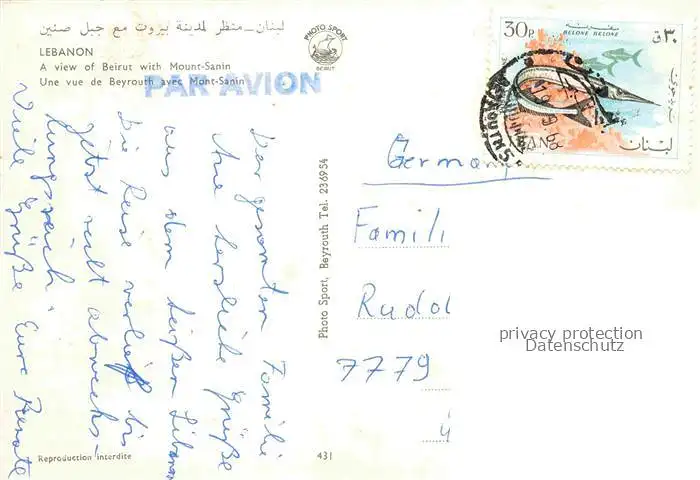 لبنان ـ منظر لمدينة بيروت مع جبل صنين
LEBANON
A view of Beirut with Mount-Sanin
Une vue de Beyrouth avec Mont-Sanin
PHOTO SPORT
BEIRUT
PAR AVION
30P
BELONE BELONE
ق ٣٠
لبنان
Der gesamten Familie
die herzliche Grüße
aus dem heißen Libanon
Die Reise verlief bis
jetzt recht abwechs-
lungsreich.
Viele Grüße Eure Renate
Photo Sport, Beyrouth Tel. 236954
Germany
Famili
Rudol
7779
ü
privacy protection
Datenschutz
Reproduction interdite
431